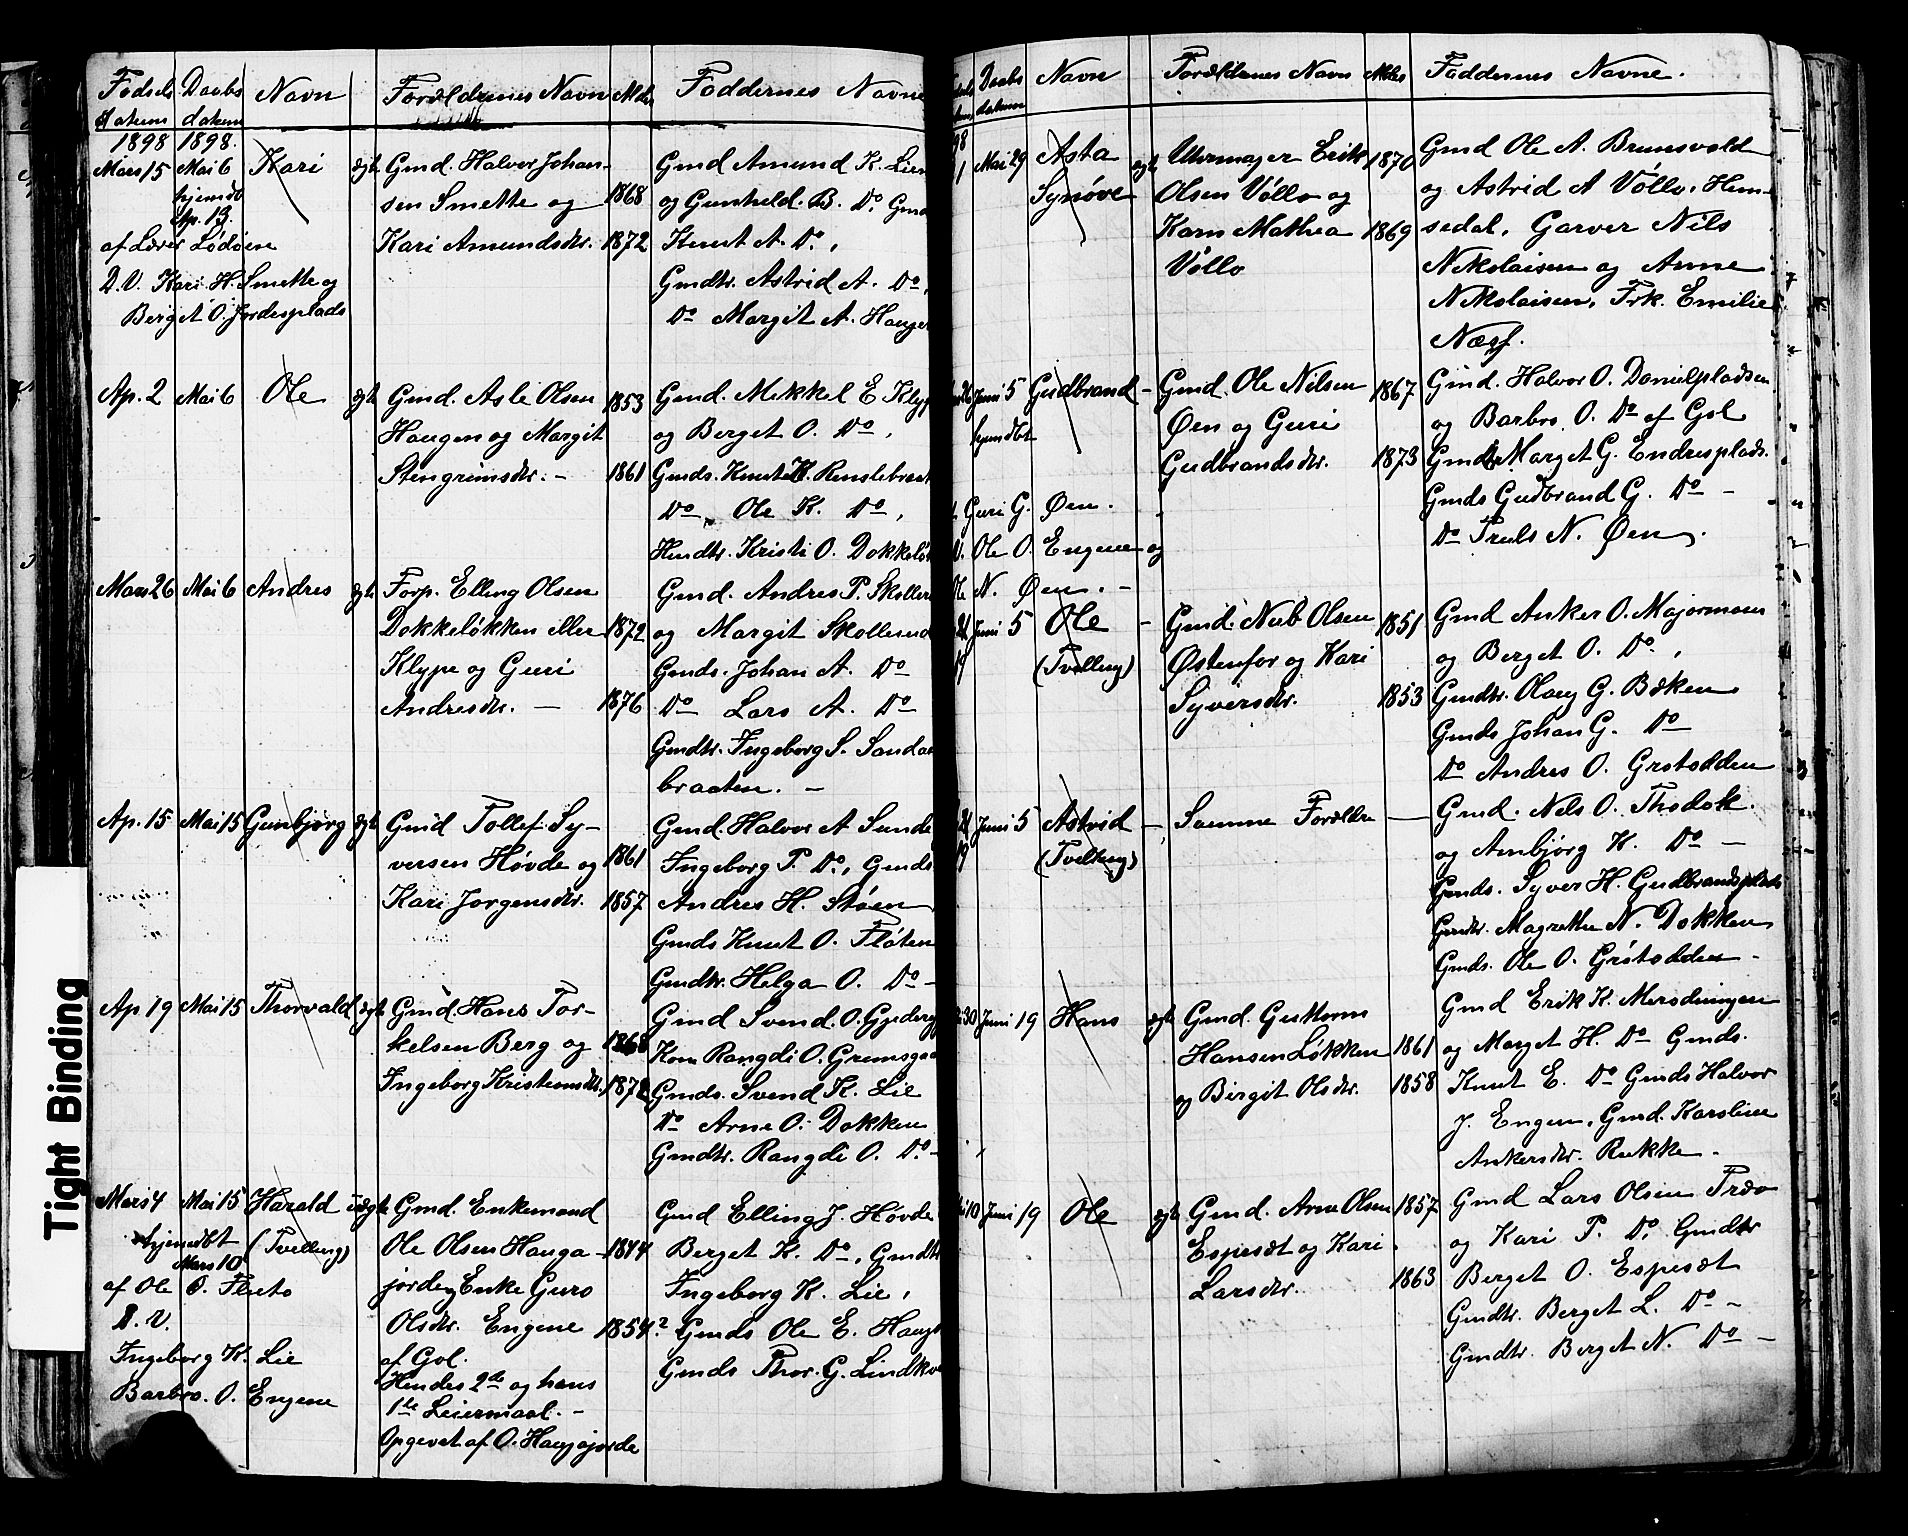 Fødsels Daabs Navn Forældrenes Navn Alder Faddernes Navne
datum datum
1898 1898.
Mars 15 Mai 6 Kari ægte Gmd. Halvor Johan- Gmd Amund K. Lien
hjemdbt sen Smette og 1868 og Gunhild. B. Do. Gmd
Ap. 13. Kari Amundsdtr. 1872 Knut A. Do,
af Lærer Lødøen Gmdtr. Astrid A. Do,
D. V. Kari H. Smette og Do Margit A. Hauger
Berget O. Jordesplads
Ap. 2 Mai 6 Ole ægte Gmd. Asle Olsen 1853 Gmd. Mekkel E. Klyp
Haugen og Margit og Berget O. Do,
Stengrimsdtr. - 1861 Gmds. Knut K. Renslebraat
Do, Ole K. Do,
Hmdtr. Kristi O. Dokkeløk
Mars 26 Mai 6 Andres ægte Forp. Elling Olsen Gmd. Andres P. Skollerud
Dokkeløkken eller 1872 og Margit Skollerud
Klype og Guri Gmds. Johan A. Do
Andresdtr. - 1876 Do Lars A. Do
Gmdtr. Ingeborg S. Sandaa
braaten. -
Ap. 15 Mai 15 Gunbjørg ægte Gmd Tollef Sy- Gmd. Halvor A Sunde
versen Høvde og 1861 Ingeborg P. Do, Gmds
Kari Jorgensdtr. 1857 Andres H. Støen
Gmds Knut O. Fløten
Gmdtr. Helga O. Do -
Ap 19 Mai 15 Thorvald ægte Gmd. Hans Tor- Gmd Svend. O. Gjedereg
kelsen Berg og 1868 Kone Rangdi O. Gremsgaa
Ingeborg Kristiansdtr. 1872 Gmds. Svend K. Lie
Do Arne O. Dokken
Gmdtr. Rangdi O. Do -
Mars 4 Mai 15 Harald uægte Gmd. Enkemand Gmd Elling J. Høvde
hjemdbt (Tvelling) Ole Olsen Hauga - 1844 Berget K. Do, Gmdtr
Mars 10 jordeg Enke Guro Ingeborg K. Lie,
af Ole O. Fluto Olsdtr. Engene 1854? Gmds Ole E. Haug
D. V. af Gol. Gmds Thor. G. Lindkve
Ingeborg K. Lie Hendes 2de og hans
Barbro. O. Engene 1te Leiermaal. -
Opgevet af O. Haugajorde
Tight Binding
Daabs Navn Forældrenes Navn Alder Faddernes Navne.
datum
98
1 Mai 29 Asta ægte Uhrmager Erik 1870 Gmd Ole A. Brunsvold
Synøve Olsen Vøllo og og Astrid A Vøllo, Hem-
Karn Mathea 1869 sedal, Garver Nils
Vøllo Nikolaisen og Anne
Nikolaisen, Frk. Emilie
Næss.
26 Juni 5 Gudbrand - Gmd. Ole Nilsen 1867 Gmd. Halvor O. Danielpladsen
hjemdbt Øen og Guri og Barbro O. Do af Gol
Gudbrandsdtr. 1873 Gmdtr Marget G. Endresplads.
Guri G. Øen. Gmds Gudbrand G. Do -
V. Ole O. Engene og Do Truls N. Øen.
Ole N. Øen. -
Juni 5 Ole - Gmd. Nub Olsen 1851 Gmd Anker O. Majormoen
19 (Tvelling) Østenfor og Kari og Berget O. Do,
Syversdtr. 1853 Gmdtr. Olaug G. Bæken
Gmds Johan G. Do
Do Andres O. Grøtodden
Juni 5 Astrid - Samme Forældre - Gmd. Nils O. Thodok.
19 (Tvelling) og Ambjørg K. Do -
Gmds. Syver H. Gudbrandsplads
Gmdtr. Magrethe N. Dokken
Gmds. Ole O. Grøtodden -
30 Juni 19 Hans ægte Gmd. Guttorm Gmd Erik K. Merodningen
Hansen Løkken 1861 og Marget H. Do Gmds.
og Birgit Olsdtr. 1858 Knut E. Do Gmds Halvor
J. Engen, Gmd. Karoline
Ankersdtr. Rukke.
10 Juni 19 Ole ægte Gmd. Arne Olsen 1857 Gmd Lars Olsen Træo
Espesæt og Kari og Kari P. Do, Gmdtr
Larsdtr. 1863 Berget O. Espesæt
Gmdtr. Berget L. Do -
Gmdtr. Berget N. Do -